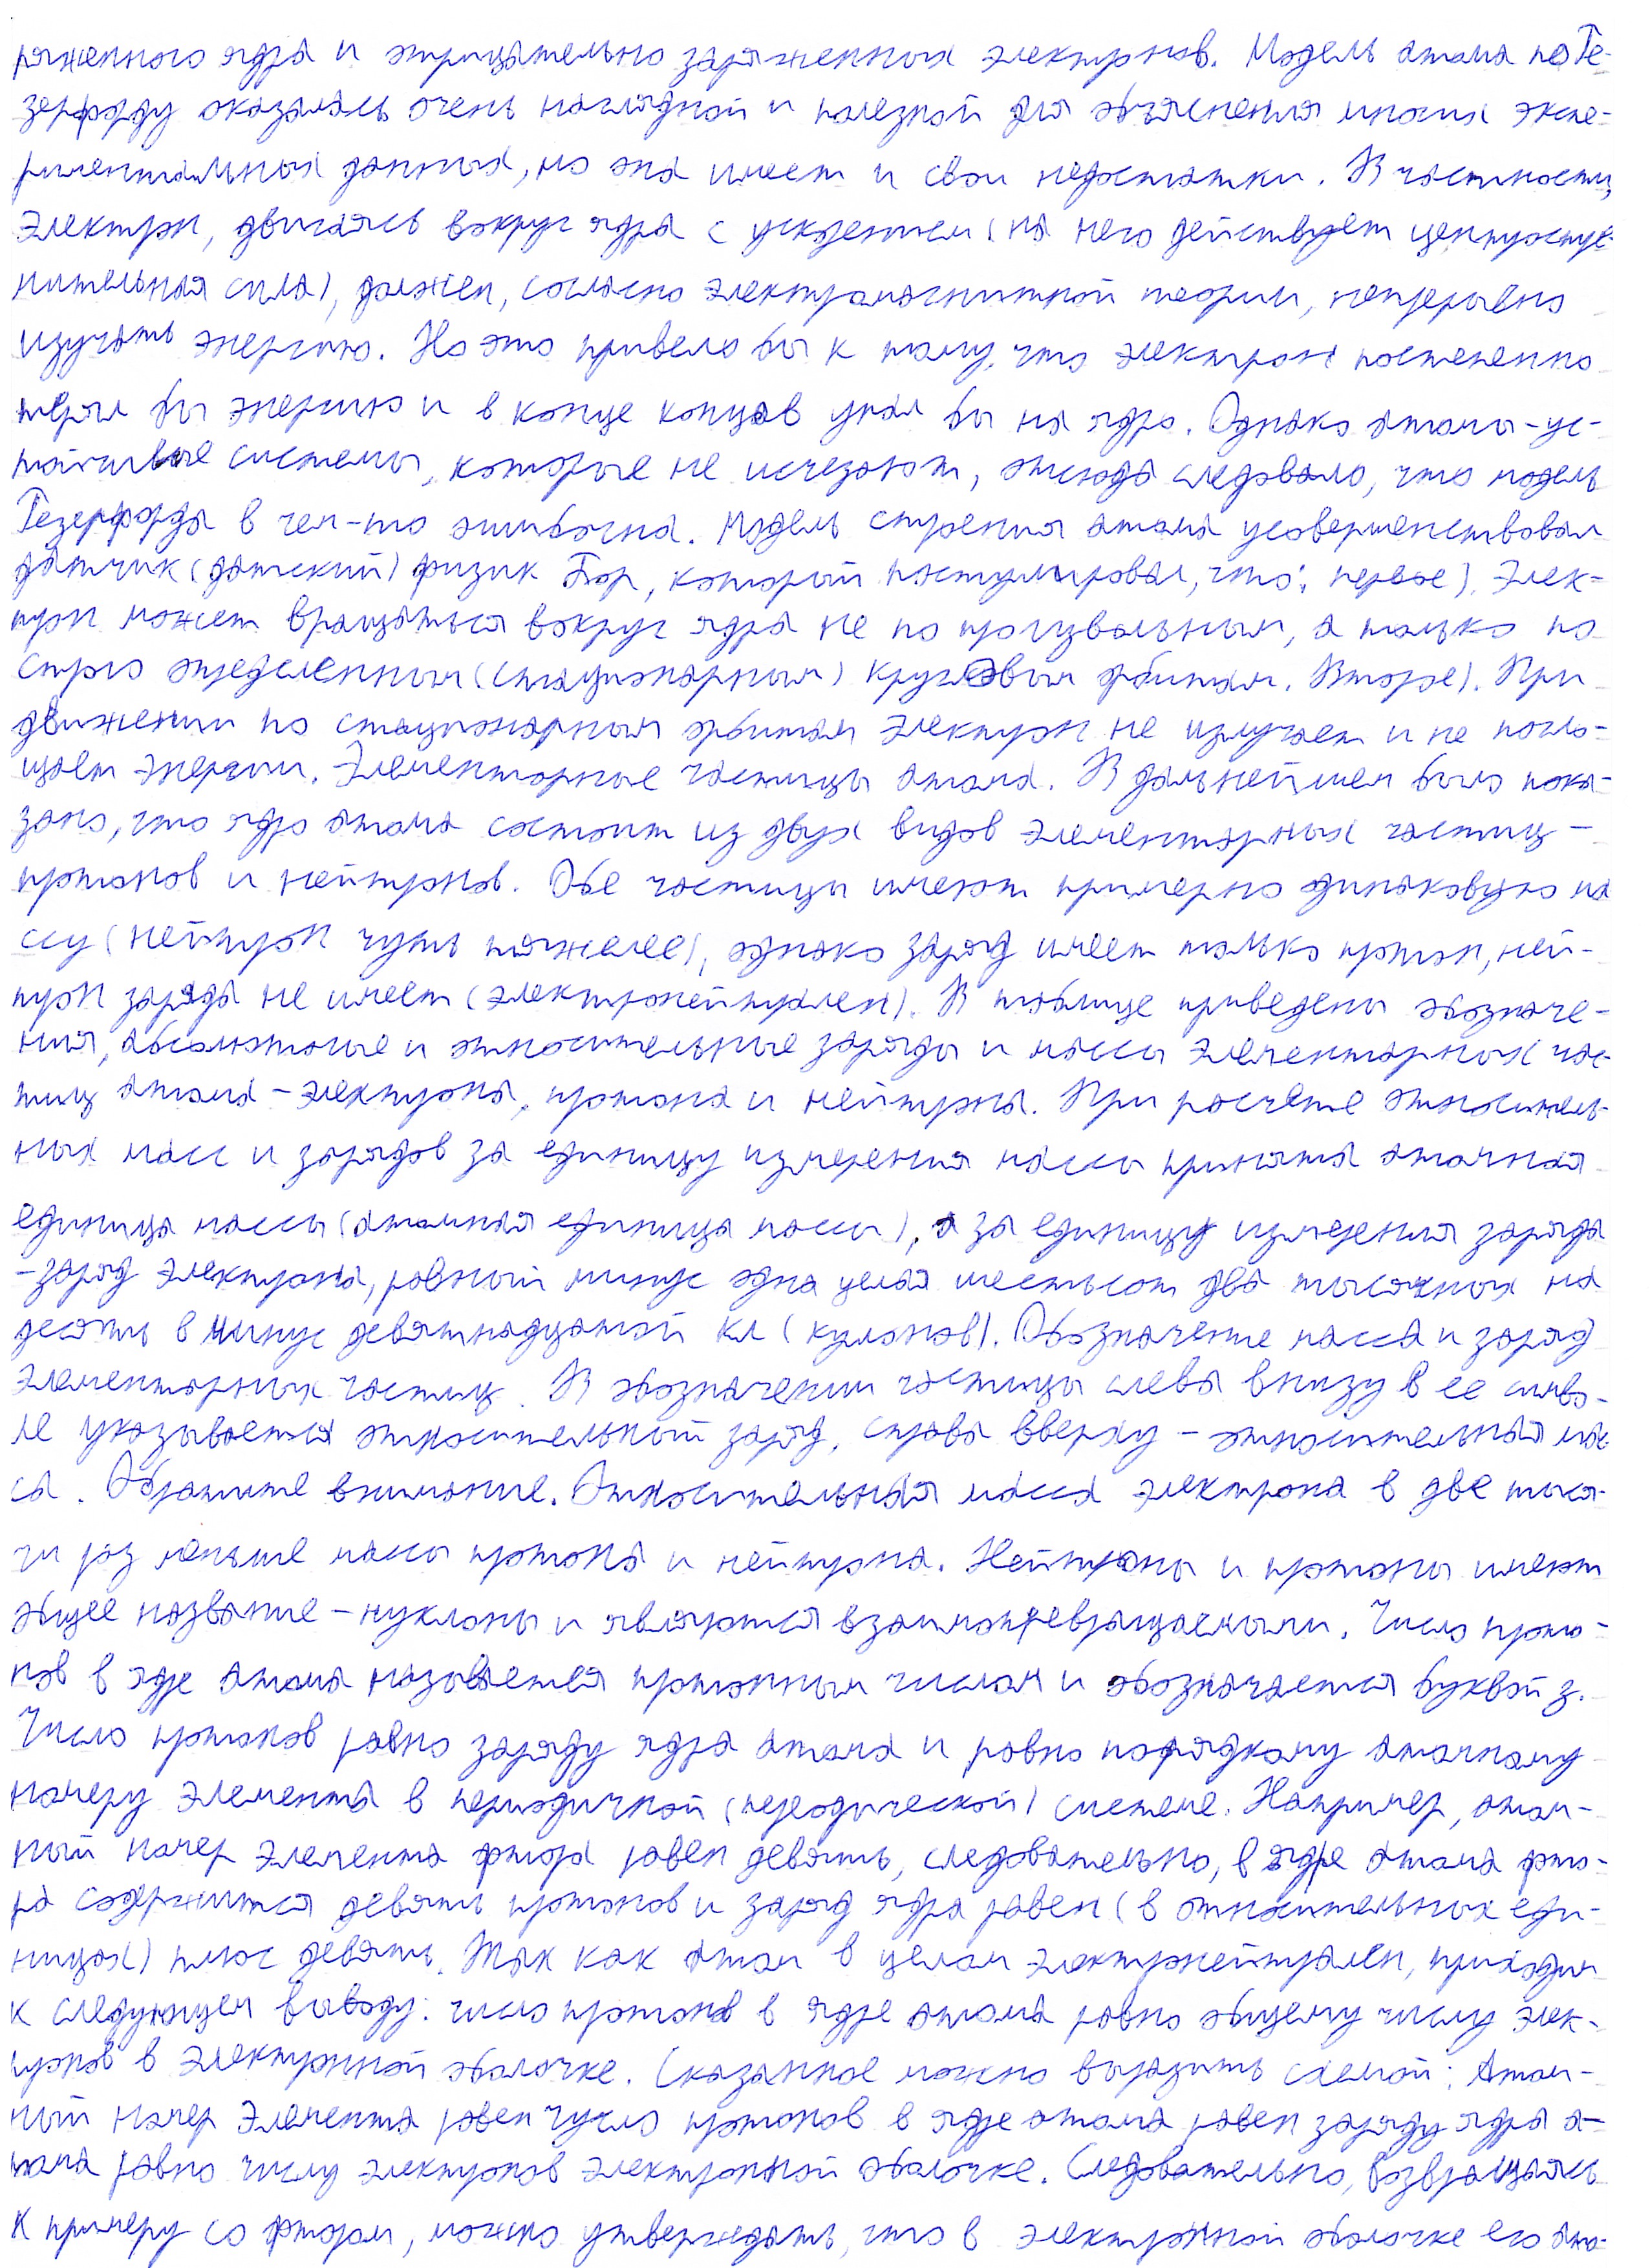 ряженного ядра и отрицательно заряженных электронов. Модель атома по Ре-
зерфорду оказалась очень наглядной и полезной для объяснения многих экспе-
риментальных данных, но она имеет и свои недостатки. В частности,
электрон, двигаясь вокруг ядра с ускорением (на него действует центростре-
мительная сила), должен, согласно электромагнитной теории, непрерывно
излучать энергию. Но это привело бы к тому, что электрон постепенно
терял бы энергию и в конце концов упал бы на ядро. Однако атомы-ус-
тойчивые системы, которые не исчезают, отсюда следовало, что модель
Резерфорда в чем-то ошибочна. Модель строения атома усовершенствовал
датчик (датский) физик Бор, который постулировал, что: первое). Элек-
трон может вращаться вокруг ядра не по произвольным, а только по
строго определенным (стационарным) круговым орбитам. Второе). При
движении по стационарным орбитам электрон не излучает и не погло-
щает энергии. Элементарные частицы атома. В дальнейшем было пока-
зано, что ядро атома состоит из двух видов элементарных частиц -
протонов и нейтронов. Обе частицы имеют примерно одинаковую ма
ссу (нейтрон чуть тяжелее), однако заряд имеет только протон, ней-
трон заряда не имеет (электронейтрален). В таблице приведены обозначе-
ния, абсолютные и относительные заряды и массы элементарных час-
тиц атома - электрона, протона и нейтрона. При расчете относитель-
ных масс и зарядов за единицу измерения массы принята атомная
единица массы (атомная единица массы), а за единицу измерения заряда
-заряд электрона, равный минус одна целая шестьсот два тысячных на
десять в минус девятнадцатой Кл (кулонов). Обозначение масса и заряд
элементарных частиц. В обозначении частицы слева внизу в ее симво-
ле указывается относительный заряд, справа вверху - относительная мас
са. Обратите внимание. Относительная масса электрона в две тыся-
чи раз меньше массы протона и нейтрона. Нейтроны и протоны имеют
общее название - нуклоны и являются взаимопревращаемыми. Число прото-
нов в ядре атома называется протонным числом и обозначается буквой z.
Число протонов равно заряду ядра атома и равно порядкому атомному
номеру элемента в периодичной (переодической) системе. Например, атом-
ный номер элемента фтора равен девять, следовательно, в ядре атома фто-
ра содержится девять протонов и заряд ядра равен (в относительных еди-
ницах) плюс девять. Так как атом в целом электронейтрален, приходим
к следующем выводу: число протонов в ядре атома равно общему числу элек-
тронов в электронной оболочке. Сказанное можно выразить схемой: Атом-
ный номер элемента равен число протонов в ядре атома равен заряду ядра а-
тома равно числу электронов электронной оболочке. Следовательно, возвращаясь
к примеру со фтором, можно утверждать, что в электронной оболочке его ато-